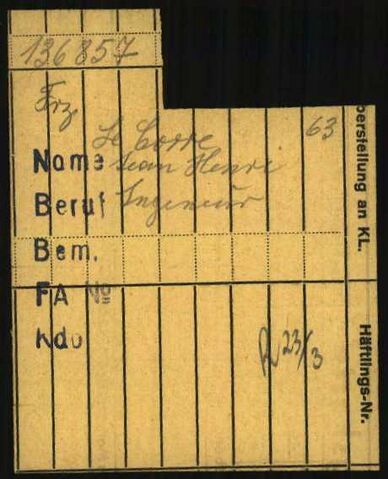 136857
Frz
63
Le Corre
Name Jean Henri
Beruf Ingenieur
Bem.
FA No
Kdo
R 23/3
berstellung an KL.
Häftlings-Nr.